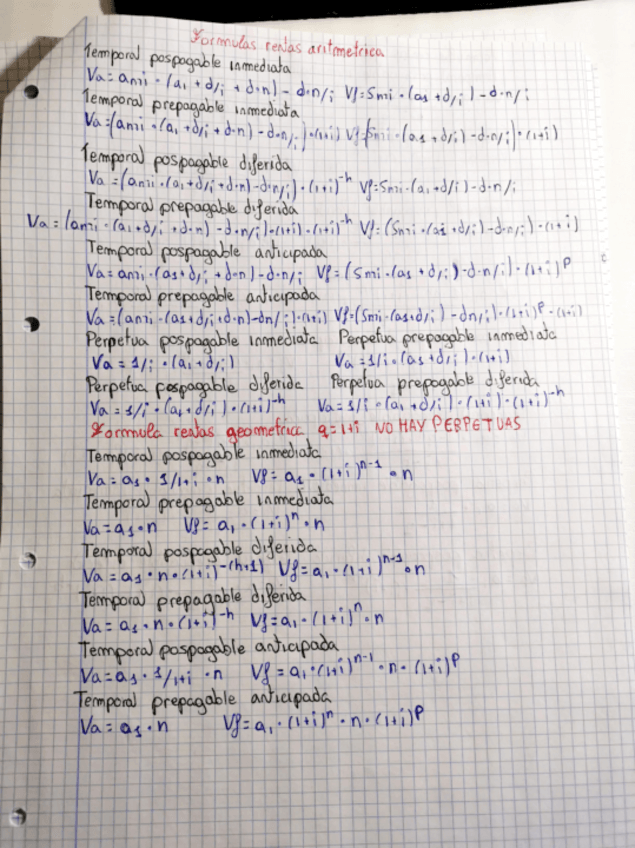 Formulas rentas aritmetrica
Temporal pospagable inmediata
Va = an¬i · (a1 + d/i + d·n) - d·n/i Vf = Sn¬i · (a1 + d/i) - d·n/i
Temporal prepagable inmediata
Va = (an¬i · (a1 + d/i + d·n) - d·n/i) · (1+i) Vf = (Sn¬i · (a1 + d/i) - d·n/i) · (1+i)
Temporal pospagable diferida
Va = (an¬i · (a1 + d/i + d·n) - d·n/i) · (1+i)^-h Vf = Sn¬i · (a1 + d/i) - d·n/i
Termporal prepagable diferida
Va = (an¬i · (a1 + d/i + d·n) - d·n/i) · (1+i) · (1+i)^-h Vf = (Sn¬i · (a1 + d/i) - d·n/i) · (1+i)
Temporal pospagable anticipada
Va = an¬i · (a1 + d/i + d·n) - d·n/i Vf = (Sn¬i · (a1 + d/i) - d·n/i) · (1+i)^p
Temporal prepagable anticipada
Va = (an¬i · (a1 + d/i + d·n) - dn/i) · (1+i) Vf = (Sn¬i · (a1 + d/i) - dn/i) · (1+i)^p · (1+i)
Perpetua pospagable inmediata Perpetua prepagable inmediata
Va = 1/i · (a1 + d/i) Va = 1/i · (a1 + d/i) · (1+i)
Perpetua pospagable diferida Perpetua prepagable diferida
Va = 1/i · (a1 + d/i) · (1+i)^-h Va = 1/i · (a1 + d/i) · (1+i) · (1+i)^-h
Formula rentas geometrica q = 1+i NO HAY PERPETUAS
Temporal pospagable inmediata
Va = a1 · 1/1+i · n Vf = a1 · (1+i)^n-1 · n
Temporal prepagable inmediata
Va = a1 · n Vf = a1 · (1+i)^n · n
Temporal pospagable diferida
Va = a1 · n · (1+i)^-(h+1) Vf = a1 · (1+i)^n-1 · n
Temporal prepagable diferida
Va = a1 · n · (1+i)^-h Vf = a1 · (1+i)^n · n
Temporal pospagable anticipada
Va = a1 · 1/1+i · n Vf = a1 · (1+i)^n-1 · n · (1+i)^p
Temporal prepagable anticipada
Va = a1 · n Vf = a1 · (1+i)^n · n · (1+i)^p